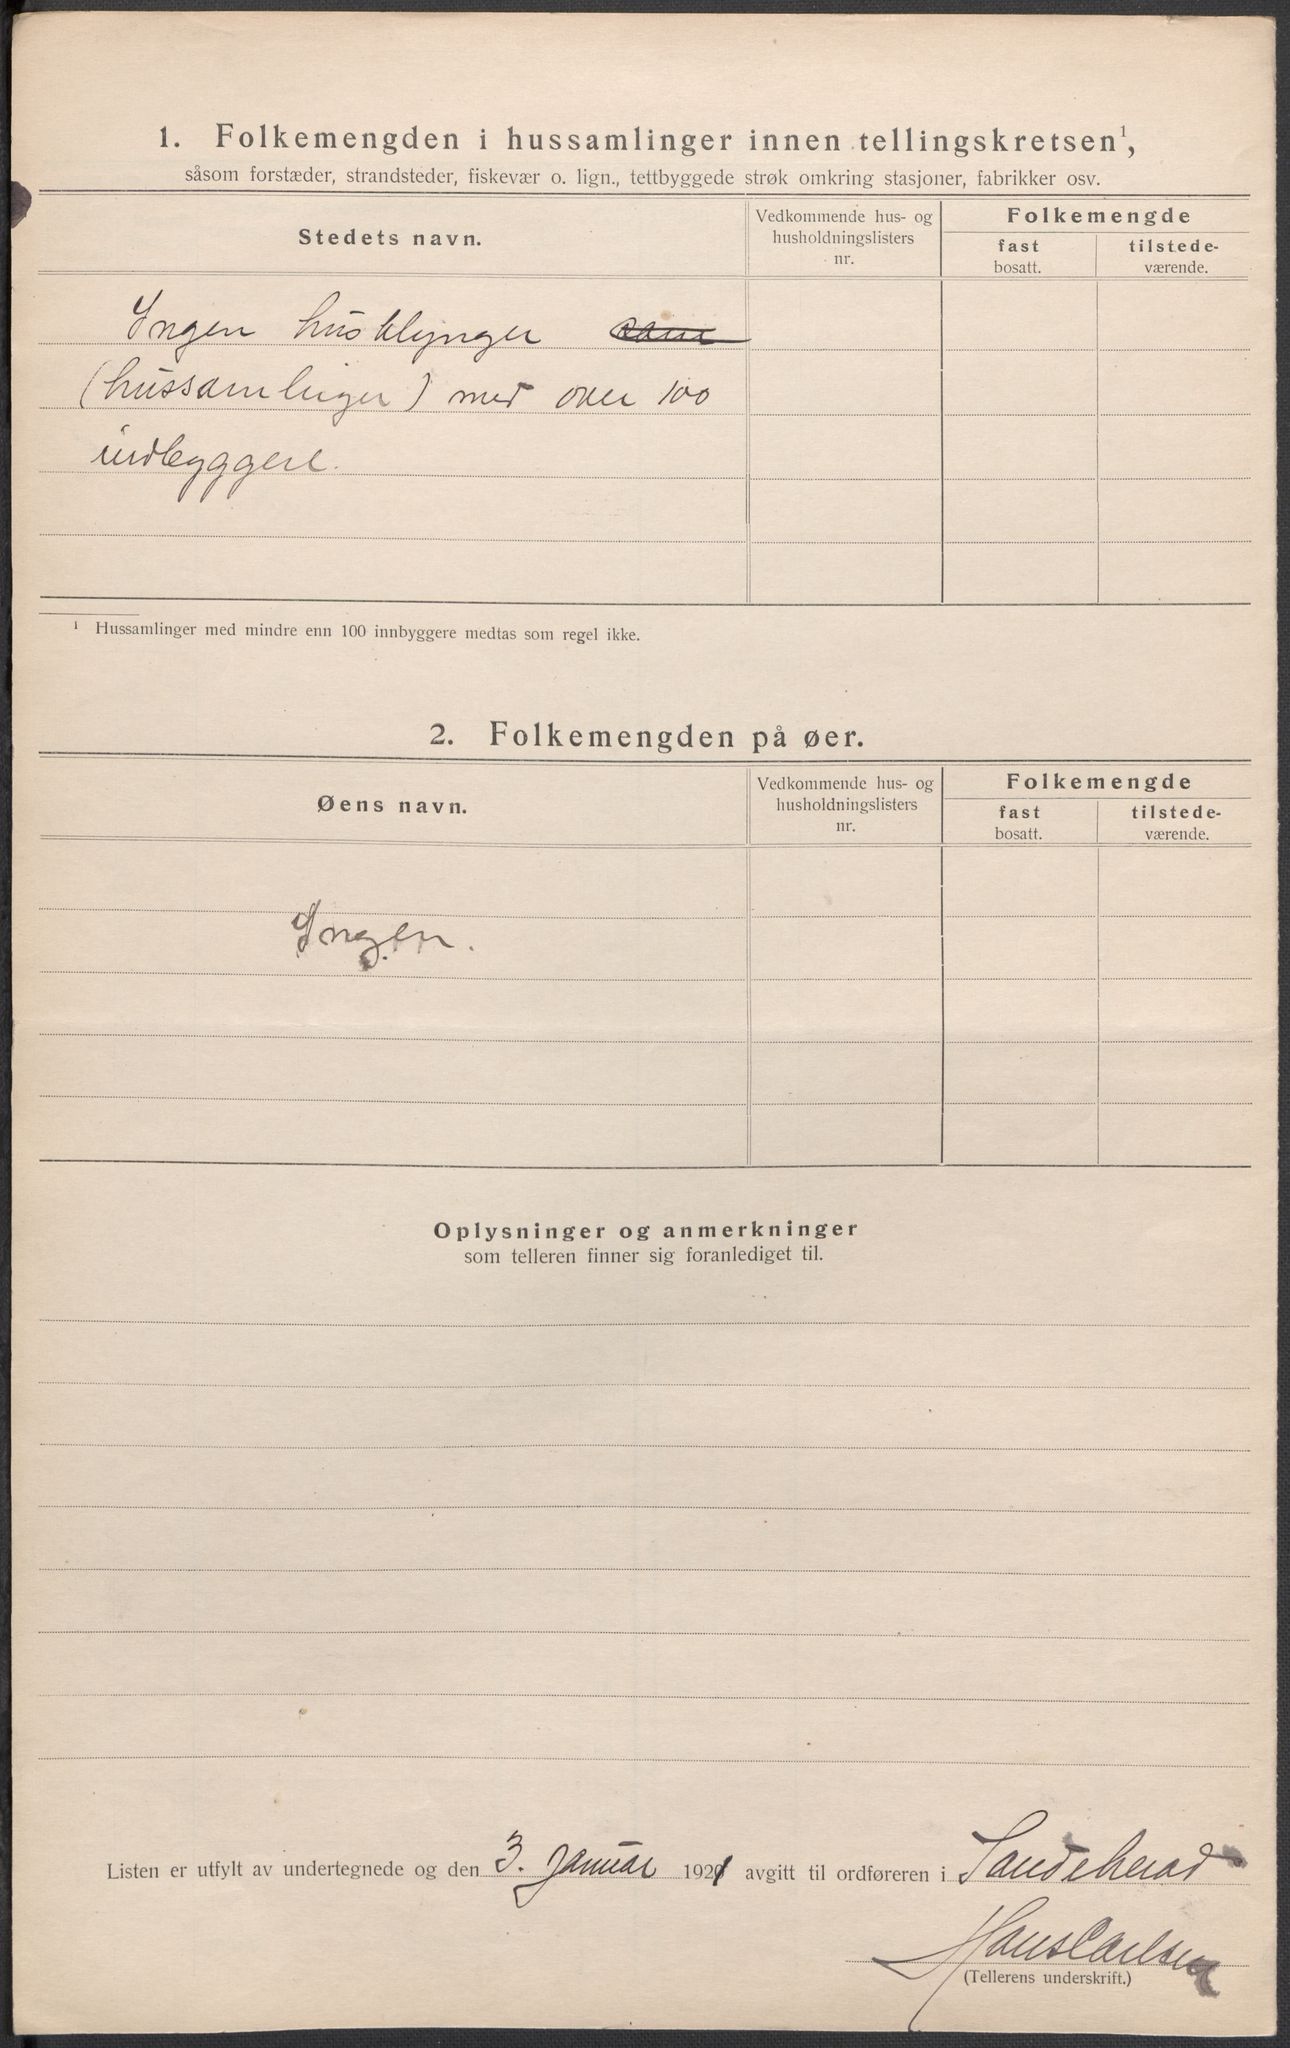 1. Folkemengden i hussamlinger innen tellingskretsen¹,
såsom forstæder, strandsteder, fiskevær o. lign., tettbyggede strøk omkring stasjoner, fabrikker osv.
Stedets navn.
Vedkommende hus- og
husholdningslisters
nr.
Folkemengde
fast
bosatt.
tilstede-
værende.
Ingen husklynger
(hussamlinger) med over 100
indbyggere.
¹ Hussamlinger med mindre enn 100 innbyggere medtas som regel ikke.
2. Folkemengden på øer.
Øens navn.
Vedkommende hus- og
husholdningslisters
nr.
Folkemengde
fast
bosatt.
tilstede-
værende.
Ingen.
Oplysninger og anmerkninger
som telleren finner sig foranlediget til.
Listen er utfylt av undertegnede og den 3. januar 1921 avgitt til ordføreren i Sandeherad
Hans Carlsen
(Tellerens underskrift.)